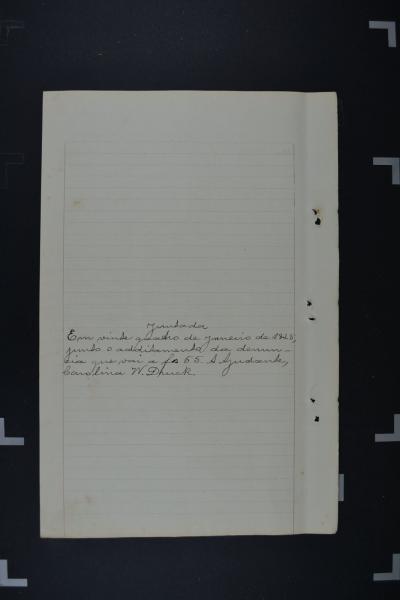 Juntada
Em vinte quatro de janeiro de 1928,
junto o additamento da denun-
cia que vai a fs 55. A Ajudante,
Carolina W. Druck.